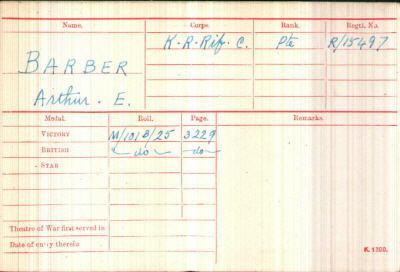 Name. Corps. Rank. Regtl. No.
BARBER K. R. Rif. C. Pte R/15497
Arthur. E.
Medal. Roll. Page. Remarks.
VICTORY M/101B/25 3229
BRITISH do do
STAR
Theatre of War first served in
Date of entry therein
K. 1380.